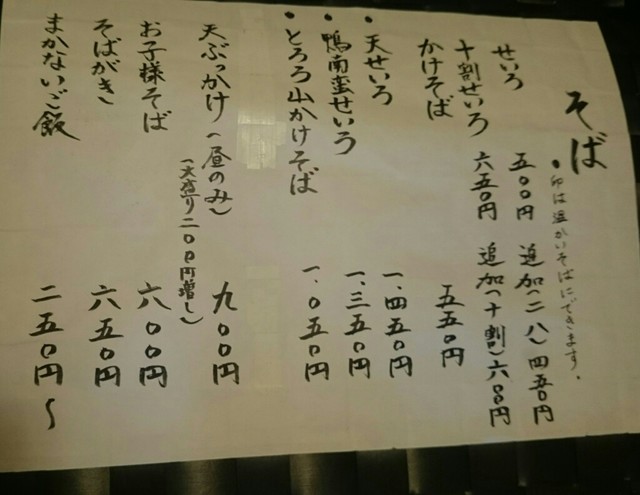 そば
●印は温かいそばにできます。
せいろ 五〇〇円 追加(二八)四五〇円
十割せいろ 六五〇円 追加(十割)六〇〇円
かけそば 五五〇円
●天せいろ 一、四五〇円
●鴨南蛮せいろ 一、三五〇円
●とろろ山かけそば 一、〇五〇円
天ぶっかけ(昼のみ) 九〇〇円
(大盛り二〇〇円増し)
お子様そば 六〇〇円
そばがき 六五〇円
まかないご飯 二五〇円〜